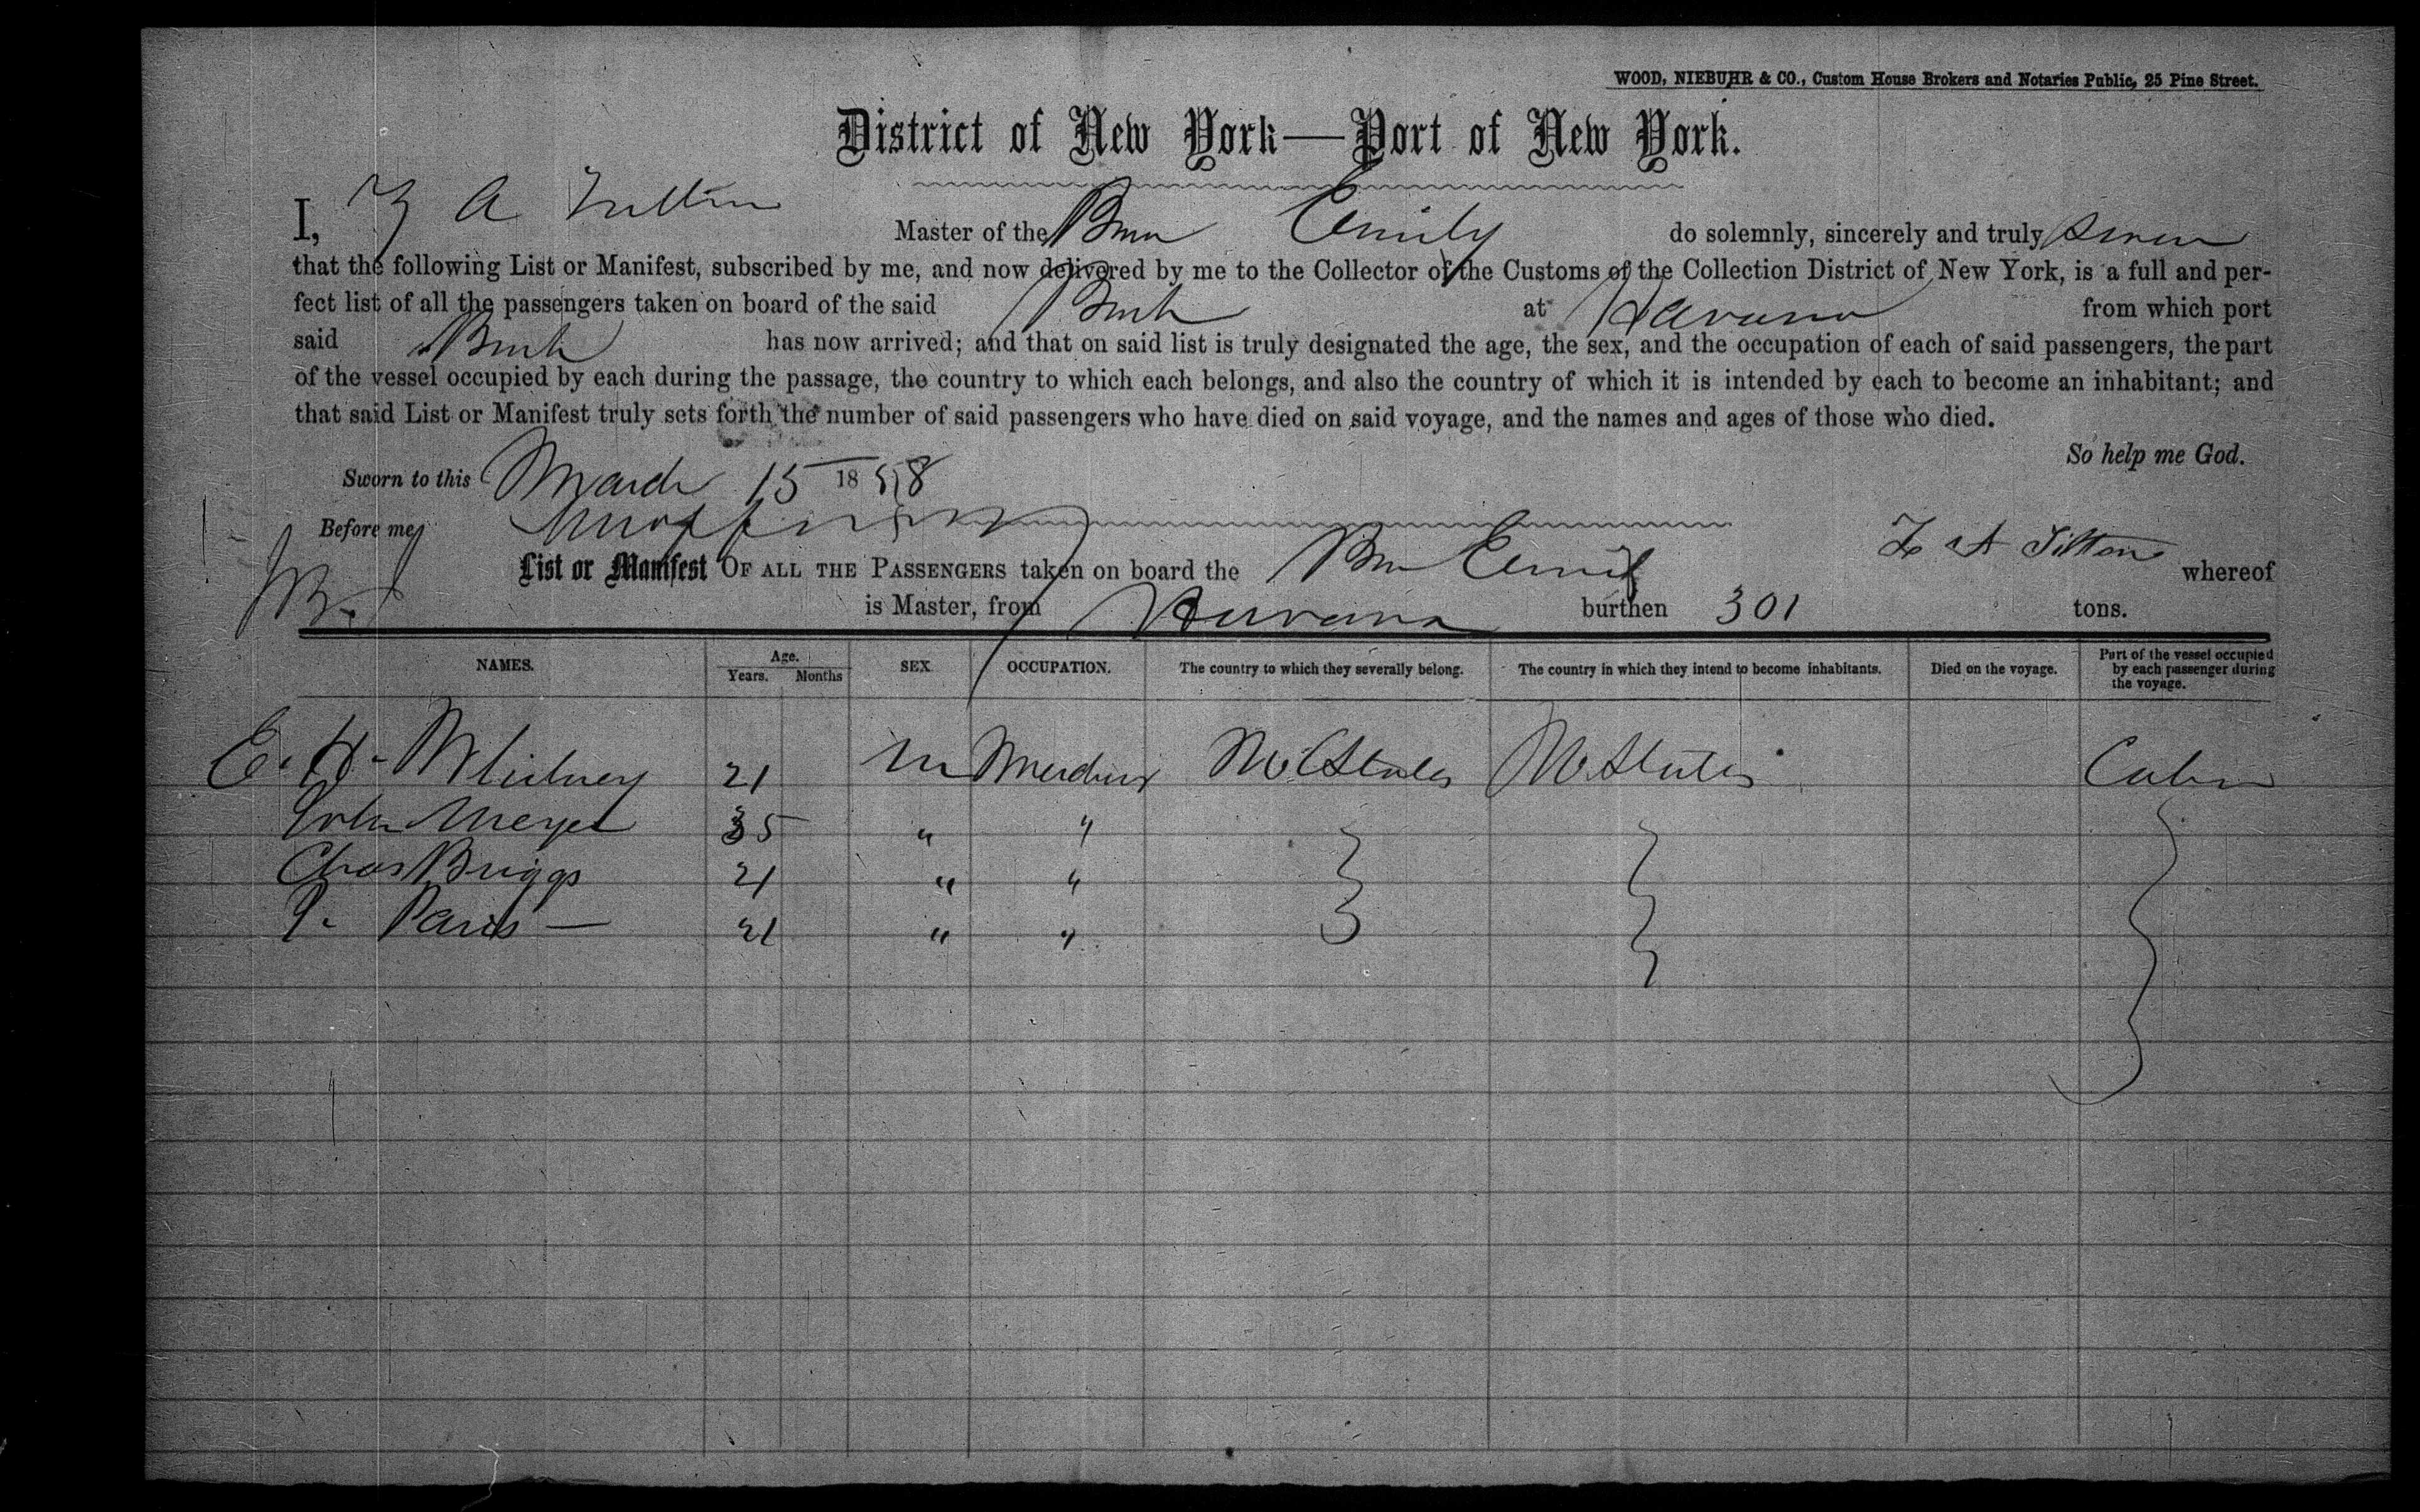 WOOD, NIEBUHR & CO., Custom House Brokers and Notaries Public, 25 Pine Street.
District of New York—Port of New York.
I, Z A Tilton Master of the Emily do solemnly, sincerely and truly swear
that the following List or Manifest, subscribed by me, and now delivered by me to the Collector of the Customs of the Collection District of New York, is a full and per-
fect list of all the passengers taken on board of the said at Havana from which port
said has now arrived; and that on said list is truly designated the age, the sex, and the occupation of each of said passengers, the part
of the vessel occupied by each during the passage, the country to which each belongs, and also the country of which it is intended by each to become an inhabitant; and
that said List or Manifest truly sets forth the number of said passengers who have died on said voyage, and the names and ages of those who died.
So help me God.
Sworn to this March 15 1858
Before me
List or Manifest OF ALL THE PASSENGERS taken on board the Emily Z A Tilton whereof
is Master, from Havana burthen 301 tons.
NAMES. Age. Years. Months SEX. OCCUPATION. The country to which they severally belong. The country in which they intend to become inhabitants. Died on the voyage. Part of the vessel occupied by each passenger during the voyage.
E. H. Whitney 21 M States States Cabin
John Meyer 35 " "
Chas Briggs 21 " "
Paris — 21 " "